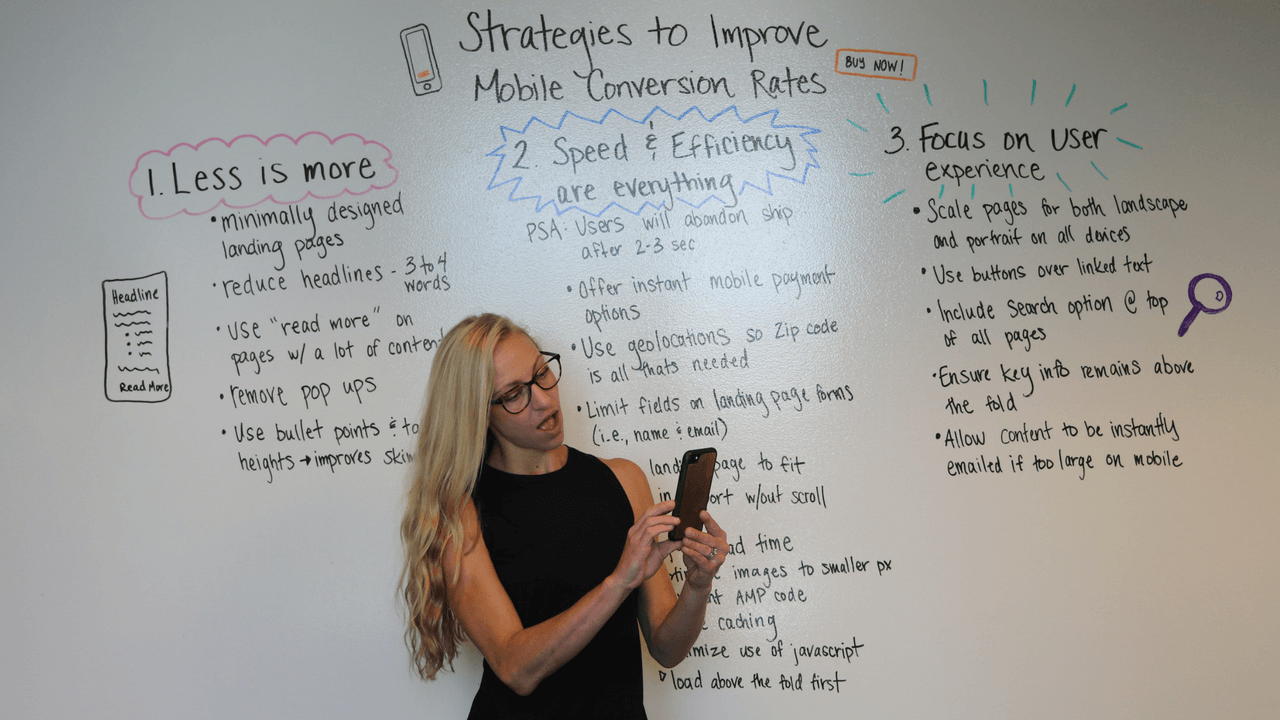 Strategies to Improve
Mobile Conversion Rates
BUY NOW!
1. Less is more
• minimally designed
landing pages
• reduce headlines - 3 to 4
words
• Use "read more" on
pages w/ a lot of content
• remove pop ups
• Use bullet points & to
heights → improves skim
Headline
Read More
2. Speed & Efficiency
are everything
PSA: Users will abandon ship
after 2-3 sec
• Offer instant mobile payment
options
• Use geolocations so Zip code
is all thats needed
• Limit fields on landing page forms
(i.e., name & email)
page to fit
w/out scroll
time
images to smaller px
AMP code
caching
use of javascript
load above the fold first
3. Focus on User
experience
• Scale pages for both landscape
and portrait on all devices
• Use buttons over linked text
• Include Search option @ top
of all pages
• Ensure key info remains above
the fold
• Allow content to be instantly
emailed if too large on mobile